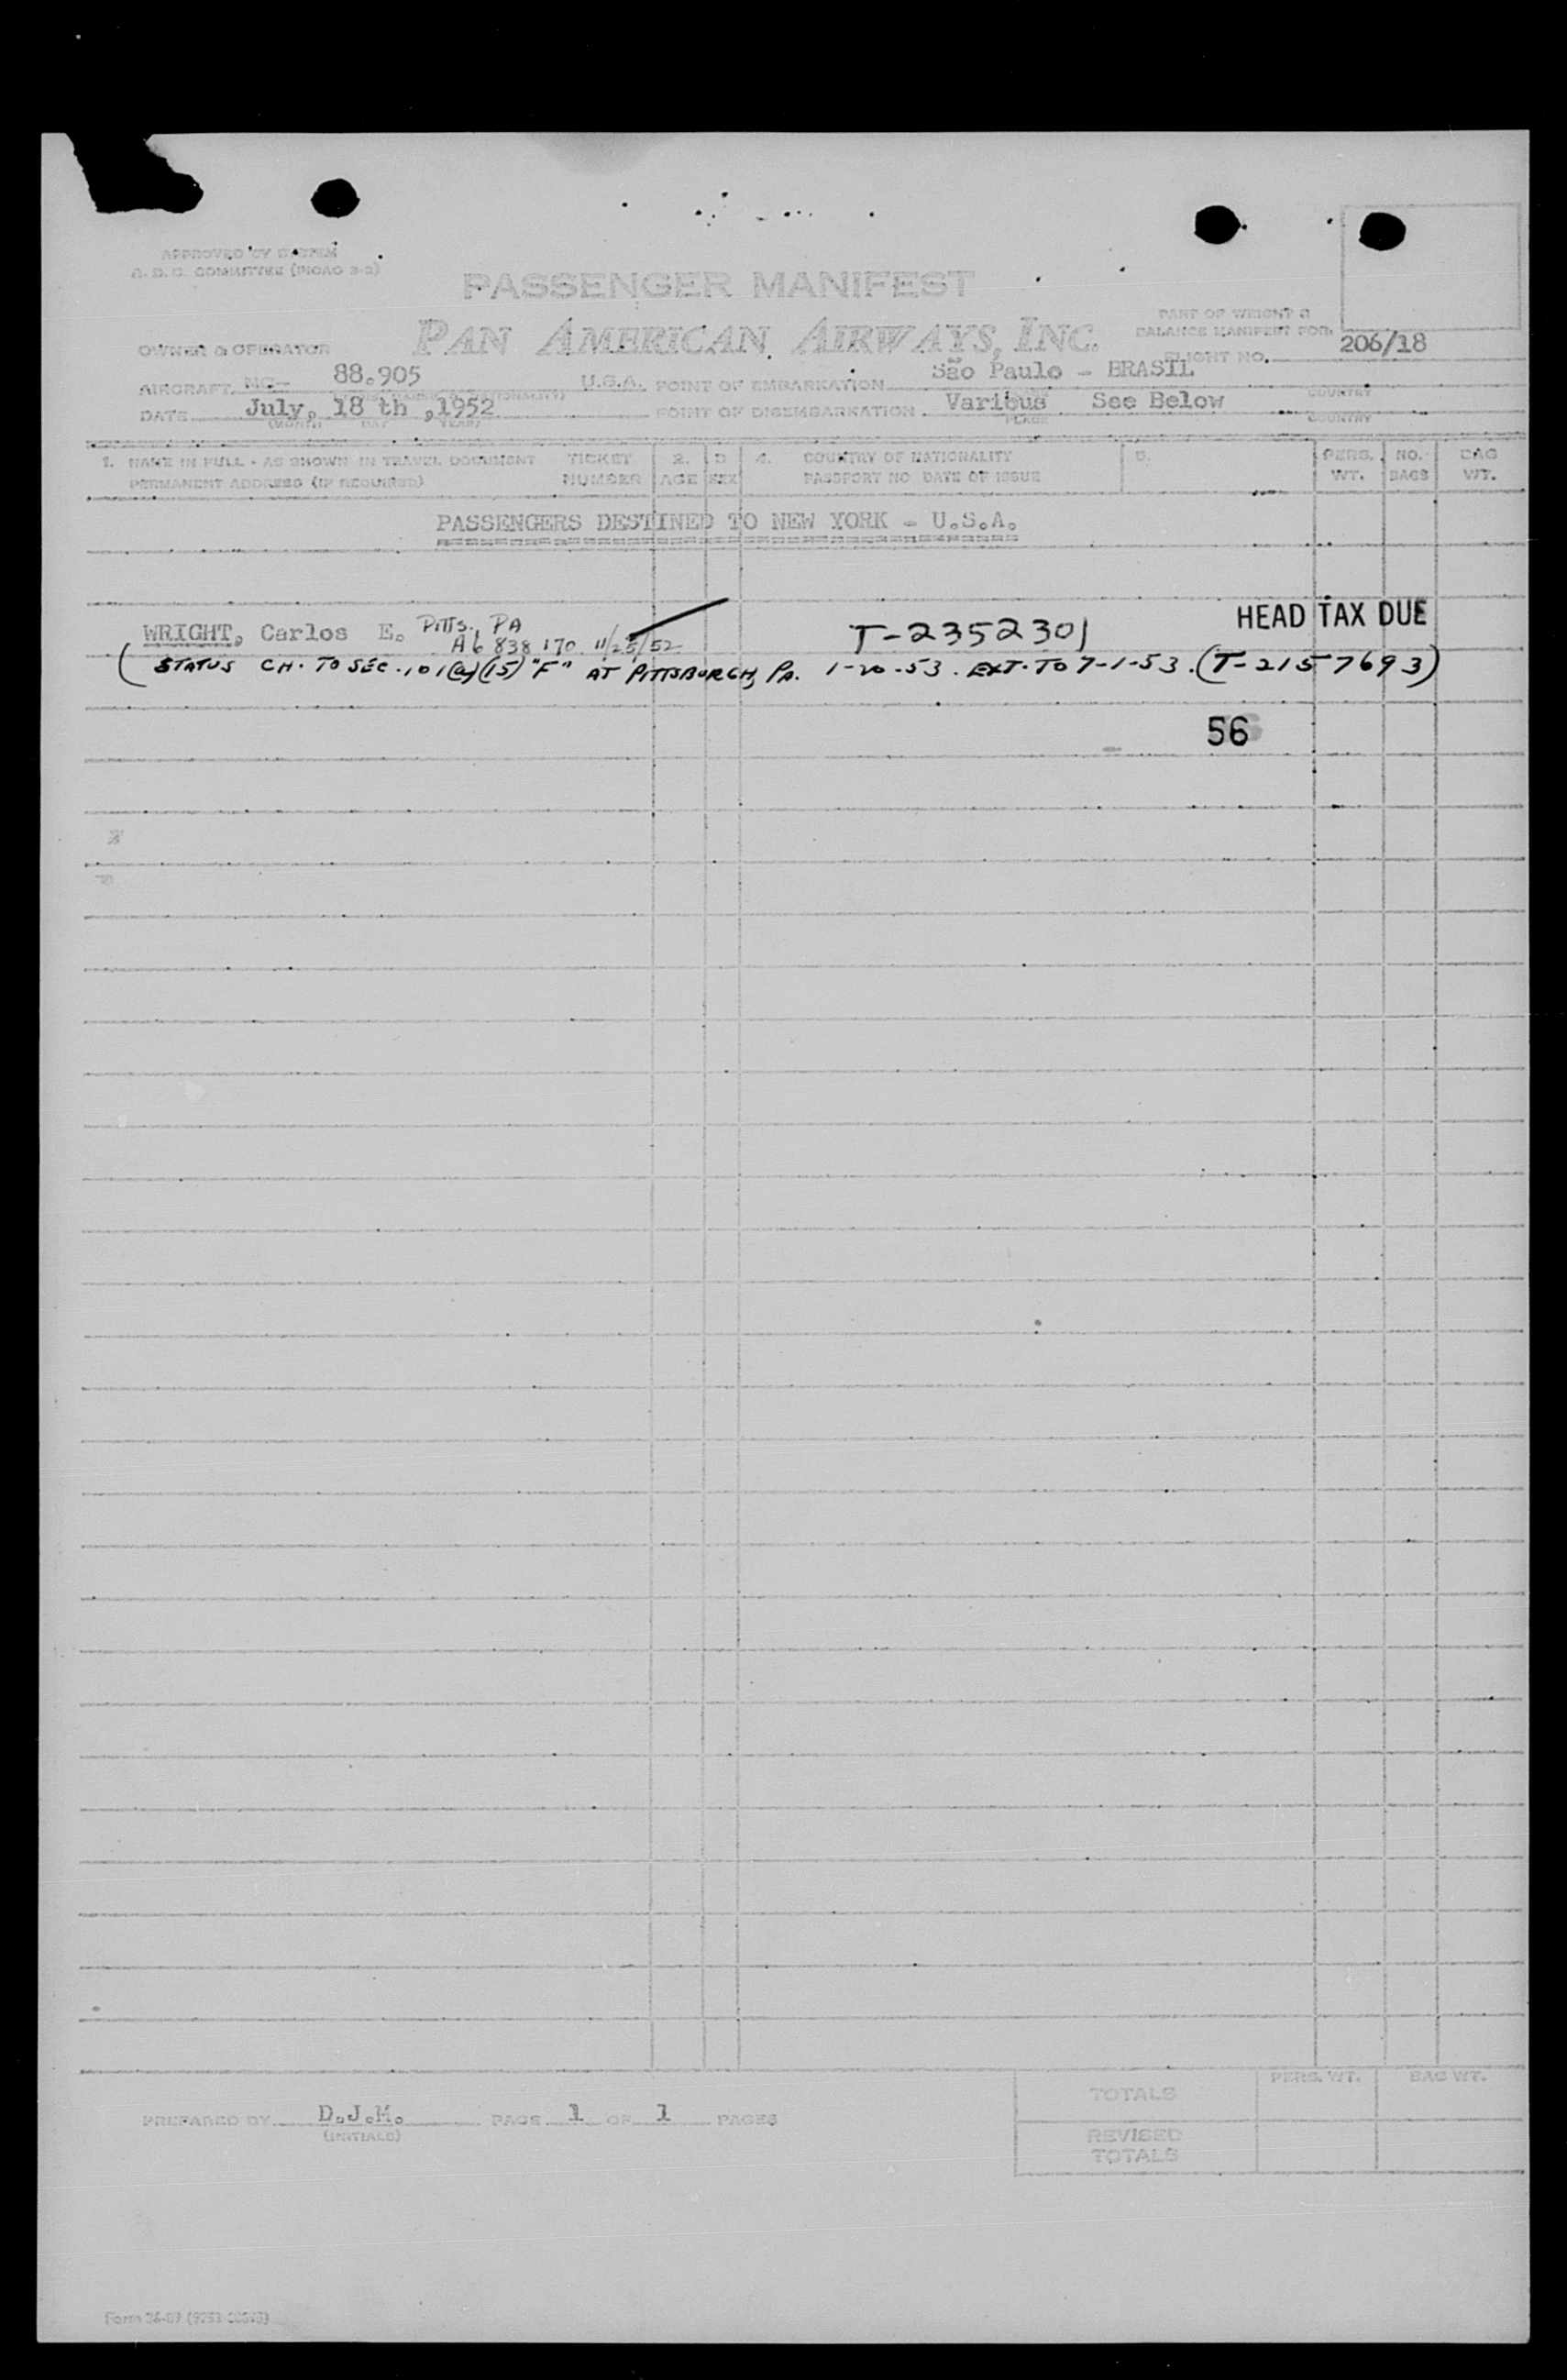 APPROVED BY SYSTEM
COMMITTEE
PASSENGER MANIFEST
PAN AMERICAN AIRWAYS, INC.
PART OF WEIGHT &
BALANCE MANIFEST FOR
OWNER & OPERATOR
FLIGHT NO. 206/18
AIRCRAFT NC- 88.905 U.S.A. POINT OF EMBARKATION São Paulo - BRASIL
COUNTRY
DATE July, 18 th ,1952 POINT OF DISEMBARKATION Various See Below
(MONTH DAY YEAR) PLACE COUNTRY
1. NAME IN FULL - AS SHOWN IN TRAVEL DOCUMENT TICKET 2. 3 4. COUNTRY OF NATIONALITY 5. PERS. NO. BAG
PERMANENT ADDRESS (IF REQUIRED) NUMBER AGE SEX PASSPORT NO. DATE OF ISSUE WT. BAGS WT.
PASSENGERS DESTINED TO NEW YORK - U.S.A.
HEAD TAX DUE
WRIGHT, Carlos E. Pitts. PA T-2352301
A6 838 170 11/25/52
(STATUS CH. TO SEC. 101(a)(15) "F" AT PITTSBURGH, PA. 1-20-53. EXT. TO 7-1-53. (T-2157693)
56
PREPARED BY D.J.M. PAGE 1 OF 1 PAGES
(INITIALS)
TOTALS PERS. WT. BAG WT.
REVISED
TOTALS
Form